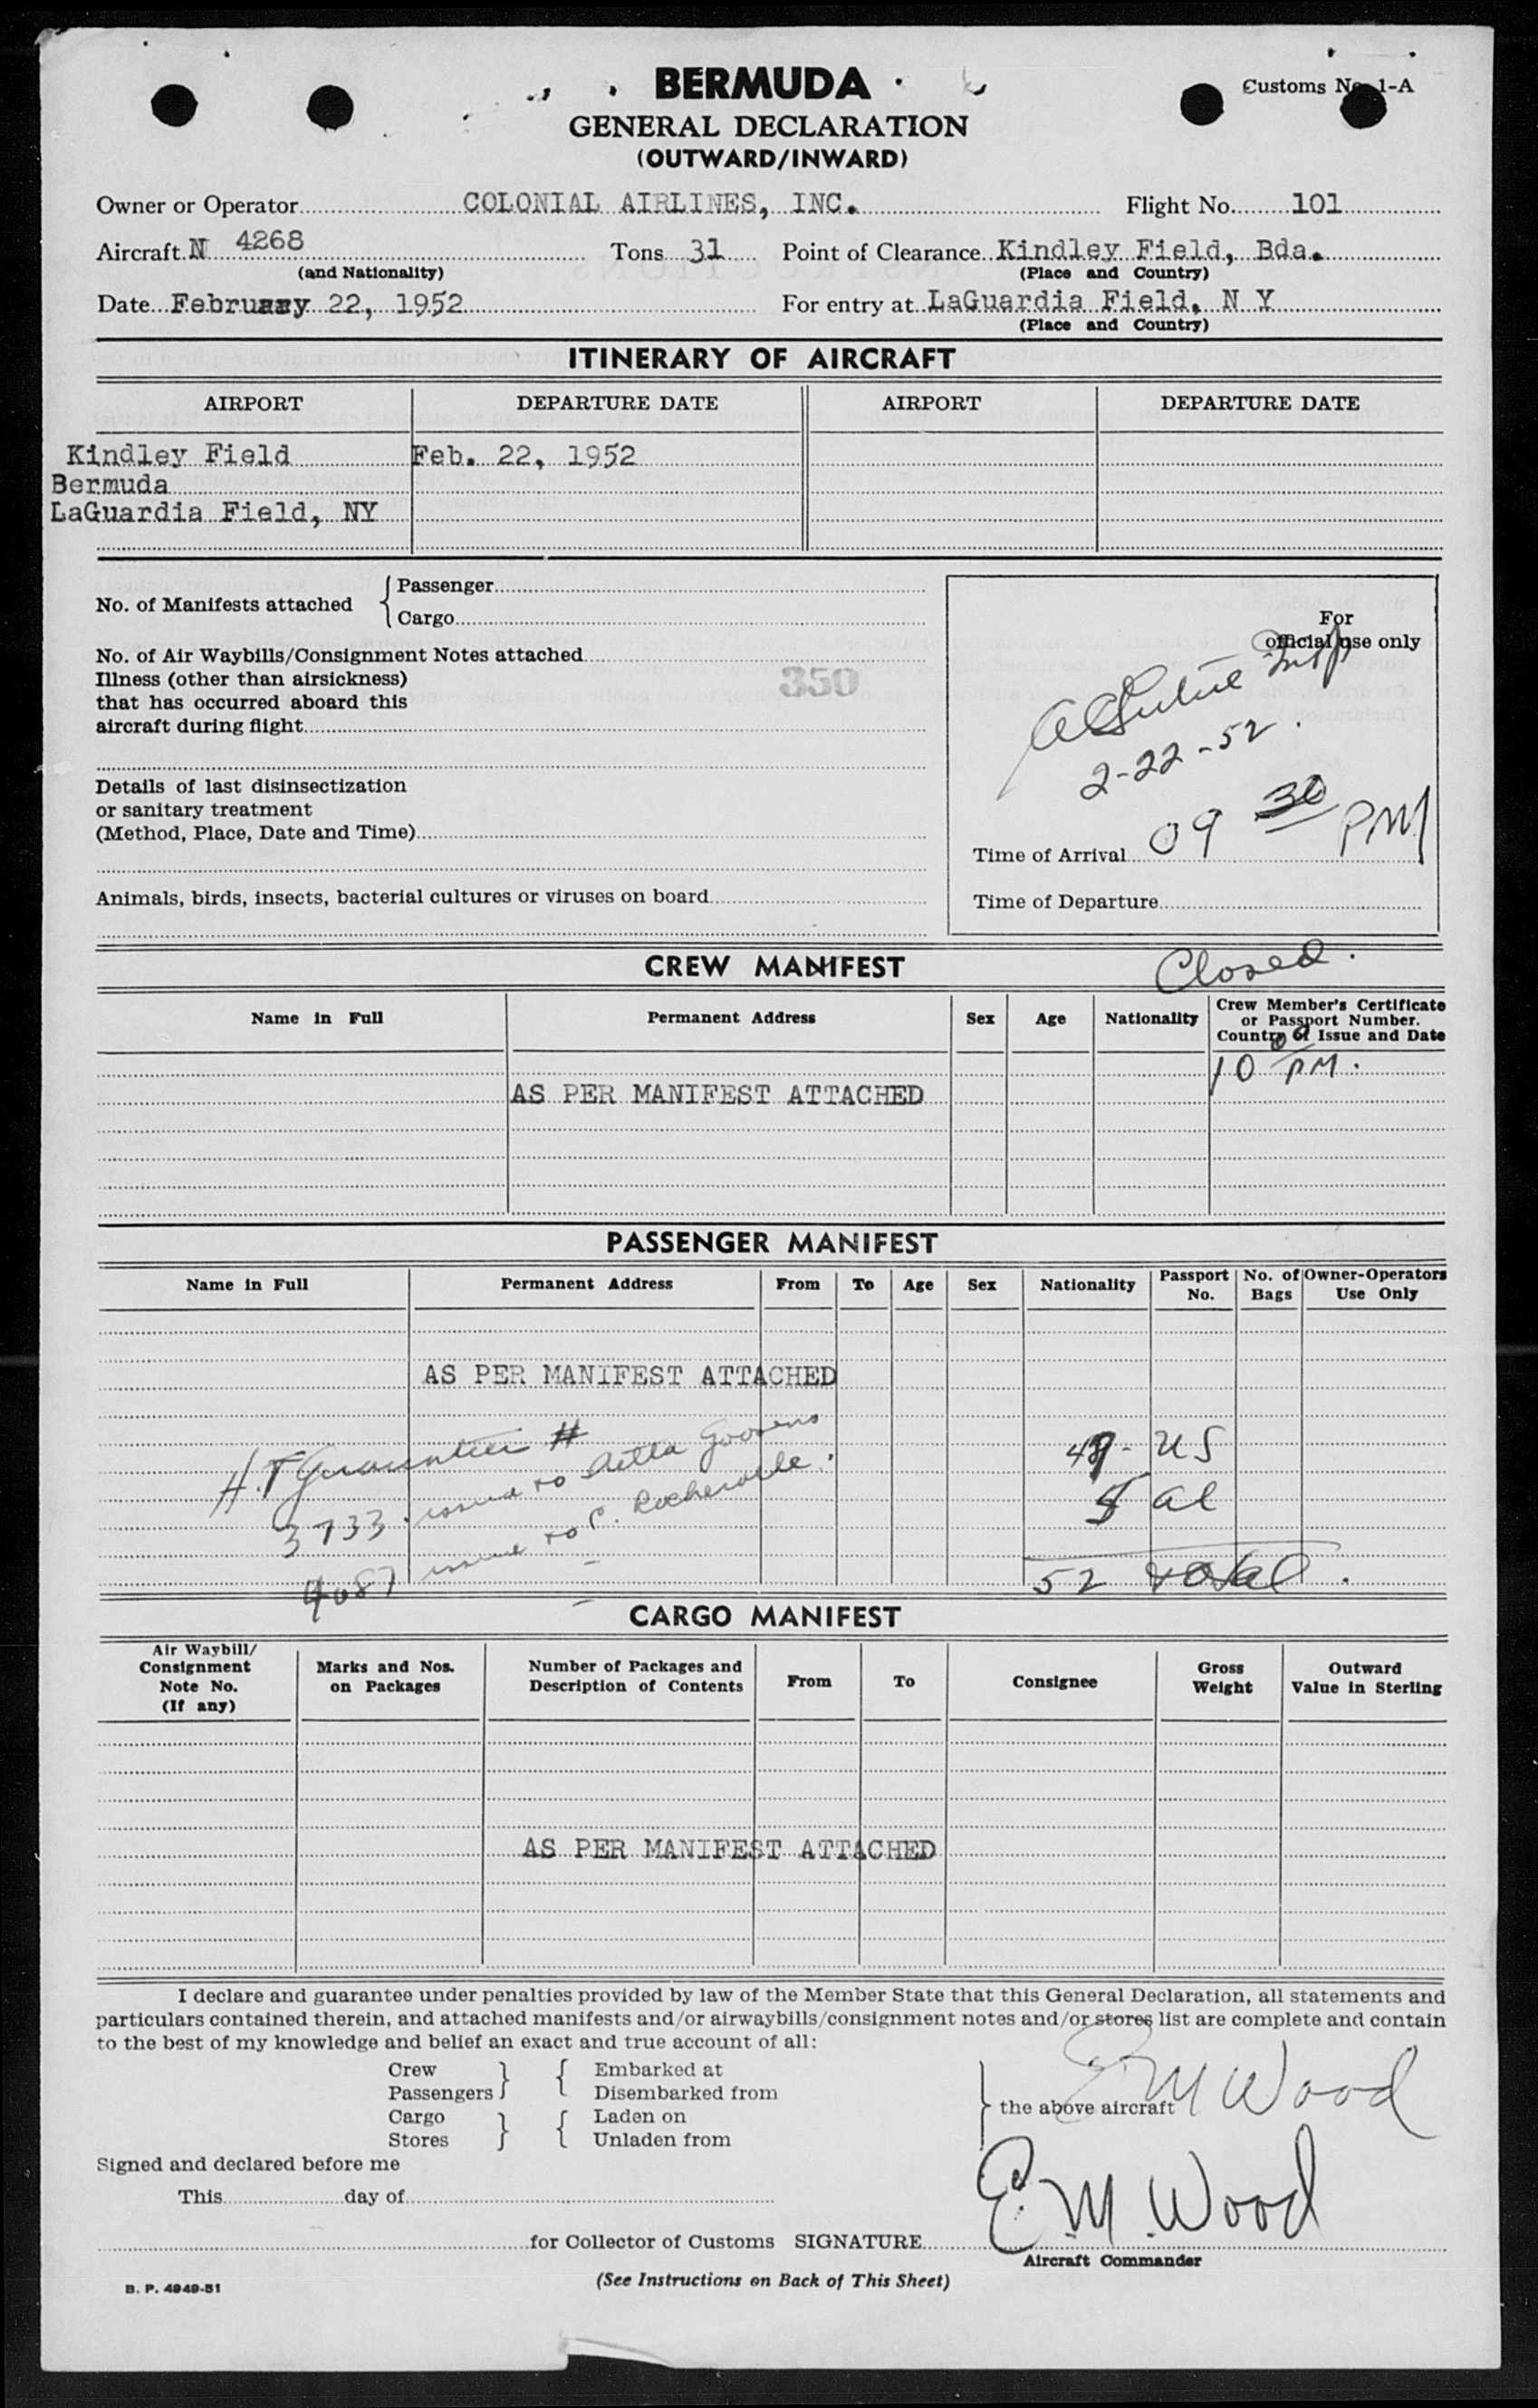 BERMUDA
Customs No. 1-A
GENERAL DECLARATION
(OUTWARD/INWARD)
Owner or Operator COLONIAL AIRLINES, INC. Flight No. 101
Aircraft N 4268 Tons 31 Point of Clearance Kindley Field, Bda.
(and Nationality) (Place and Country)
Date February 22, 1952 For entry at LaGuardia Field, N Y
(Place and Country)
ITINERARY OF AIRCRAFT
AIRPORT DEPARTURE DATE AIRPORT DEPARTURE DATE
Kindley Field Feb. 22, 1952
Bermuda
LaGuardia Field, NY
No. of Manifests attached { Passenger
Cargo
For
official use only
No. of Air Waybills/Consignment Notes attached
Illness (other than airsickness)
that has occurred aboard this
aircraft during flight
350
2-22-52.
Details of last disinsectization
or sanitary treatment
(Method, Place, Date and Time)
Time of Arrival 09 30 PM
Animals, birds, insects, bacterial cultures or viruses on board
Time of Departure
CREW MANIFEST
Closed.
Name in Full Permanent Address Sex Age Nationality Crew Member's Certificate
or Passport Number.
Country of Issue and Date
10 PM.
AS PER MANIFEST ATTACHED
PASSENGER MANIFEST
Name in Full Permanent Address From To Age Sex Nationality Passport No. No. of Bags Owner-Operators Use Only
AS PER MANIFEST ATTACHED
H.T. #
3733 issued to Goosens
4087 issued to C.
US
al
52 total.
CARGO MANIFEST
Air Waybill/ Consignment Note No. (If any) Marks and Nos. on Packages Number of Packages and Description of Contents From To Consignee Gross Weight Outward Value in Sterling
AS PER MANIFEST ATTACHED
I declare and guarantee under penalties provided by law of the Member State that this General Declaration, all statements and
particulars contained therein, and attached manifests and/or airwaybills/consignment notes and/or stores list are complete and contain
to the best of my knowledge and belief an exact and true account of all:
Crew } { Embarked at
Passengers Disembarked from
Cargo } { Laden on
Stores Unladen from
} the above aircraft
E M Wood
Signed and declared before me
This day of
for Collector of Customs SIGNATURE E. M. Wood
Aircraft Commander
B. P. 4949-51
(See Instructions on Back of This Sheet)